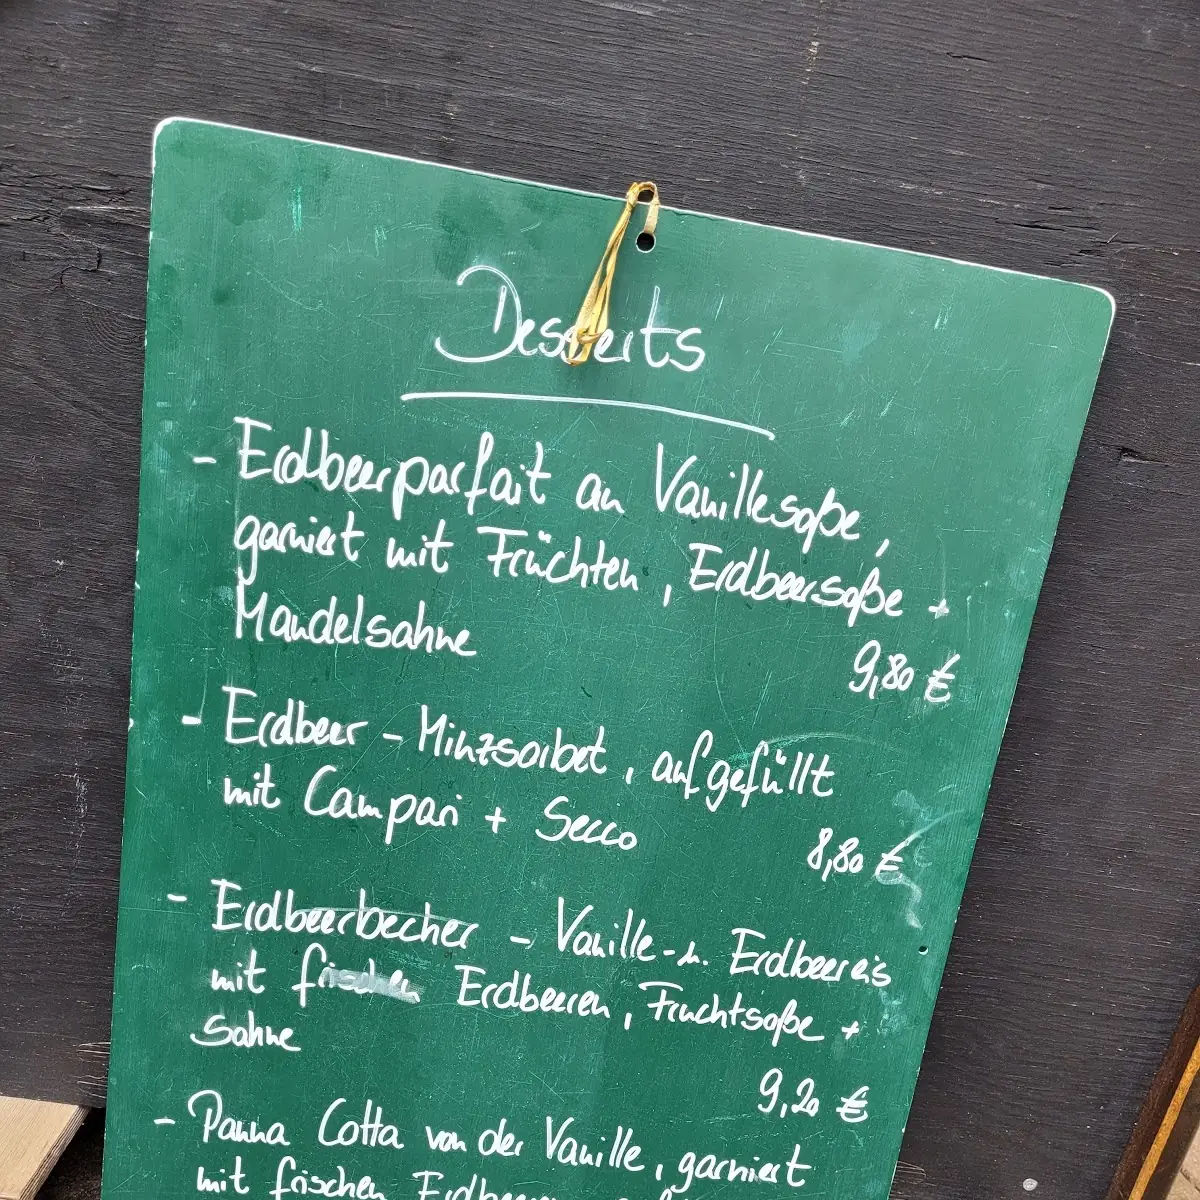 Desserts
- Erdbeerparfait an Vanillesoße,
garniert mit Früchten, Erdbeersoße +
Mandelsahne
9,80 €
- Erdbeer - Minzsorbet, aufgefüllt
mit Campari + Secco
8,80 €
- Erdbeerbecher - Vanille- u. Erdbeereis
mit frischen Erdbeeren, Fruchtsoße +
Sahne
9,20 €
- Panna Cotta von der Vanille, garniert
mit frischen Erdbeeren